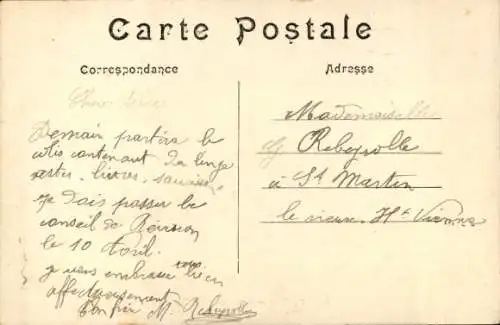 Carte Postale
Correspondance
Adresse
Demain partira le
colis contenant du linge
vestes, livres, saucisson
Je dois passer le
conseil de Révision
le 10 Avril.
je vous embrasse tous bien
affectueusement
Ton frère M. Rebeyrolle
Mademoiselle
G Rebeyrolle
à St Martin
le vieux. Hte Vienne